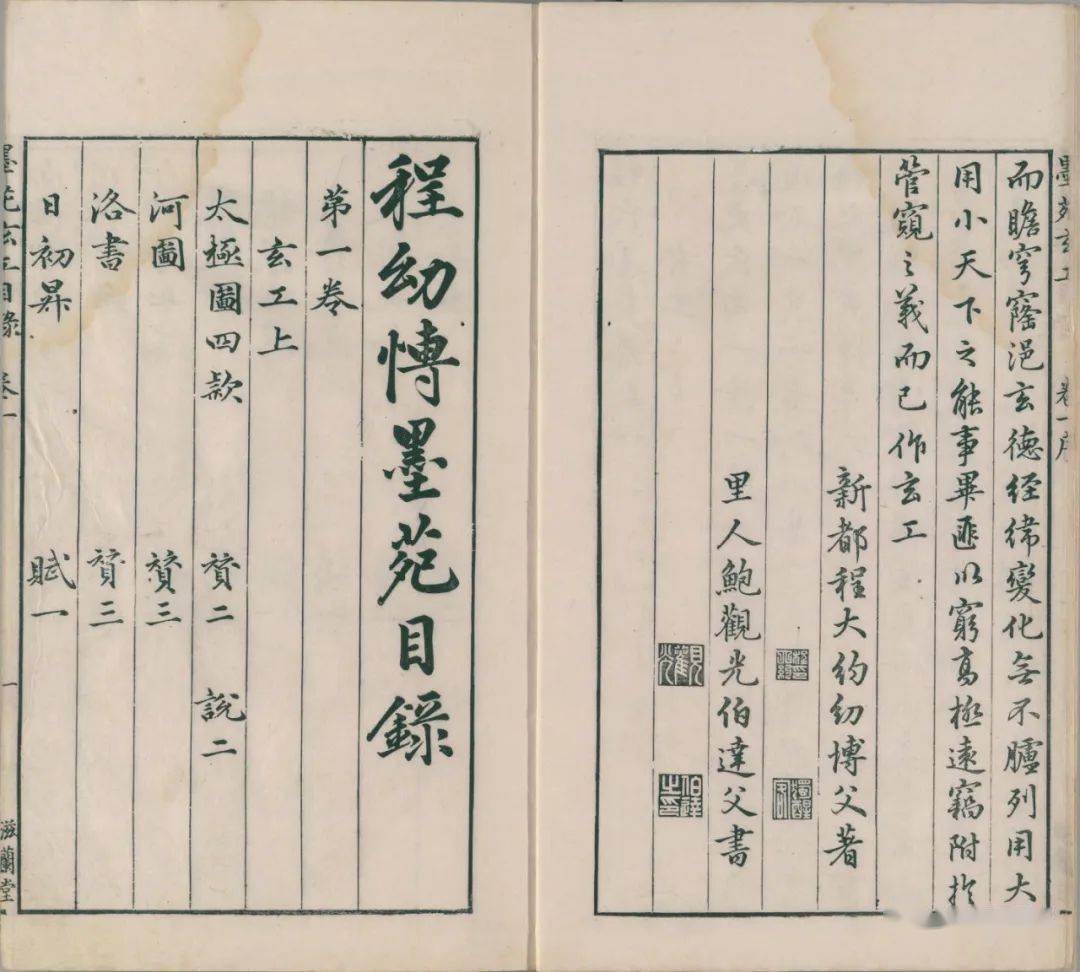 墨苑玄工
卷一序
而瞻穹窿浥玄德經緯變化無不臚列用大
用小天下之能事畢匪以窮高極遠竊附於
管窺之義而已作玄工
新都程大約幼博父著
里人鮑觀光伯達父書
觀光
伯達之印
程幼博墨苑目錄
第一卷
玄工上
太極圖四款 贊二 說二
河圖 贊三
洛書 贊三
日初昇 賦一
墨苑玄工目錄 卷一
一
滋蘭堂